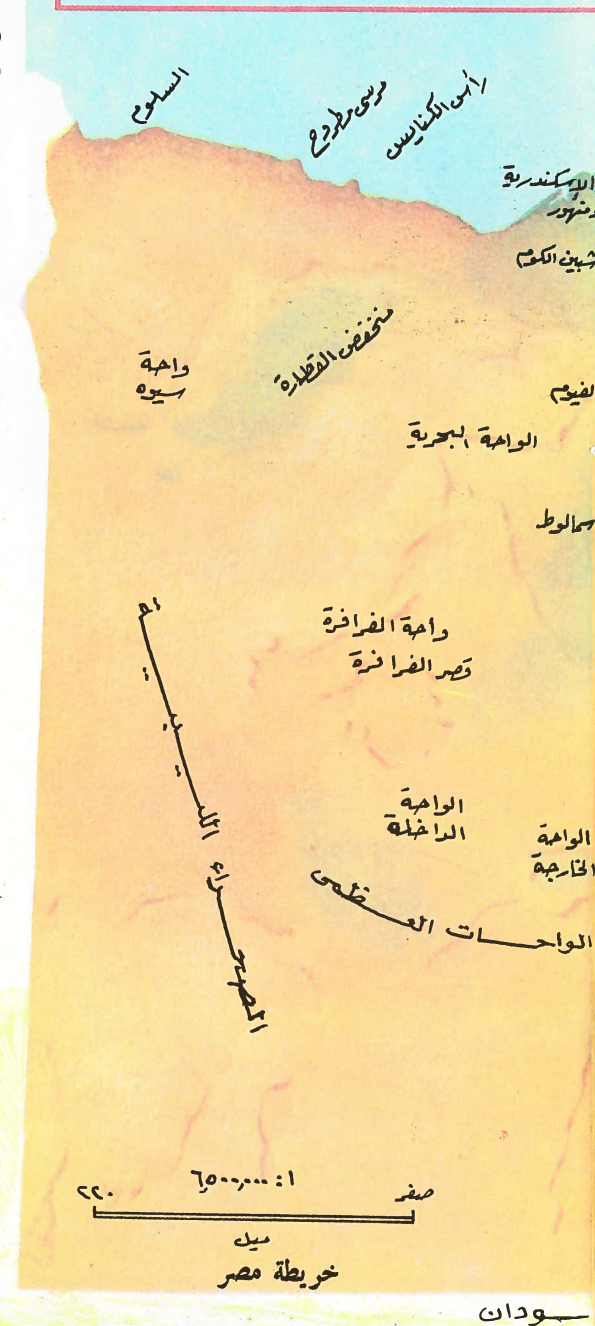 السلوم
مرسى مطروح
رأس الكنايس
الإسكندرية
دمنهور
شبين الكوم
منخفض القطارة
واحة
سيوه
لفيوم
الواحة البحرية
سمالوط
واحة الفرافرة
قصر الفرافرة
الواحة
الداخلة
الواحة
الخارجة
الواحات العظمى
الصحراء الليبية
١ : ٦,٥٠٠,٠٠٠
صفر
٢٢٠
ميل
خريطة مصر
سودان